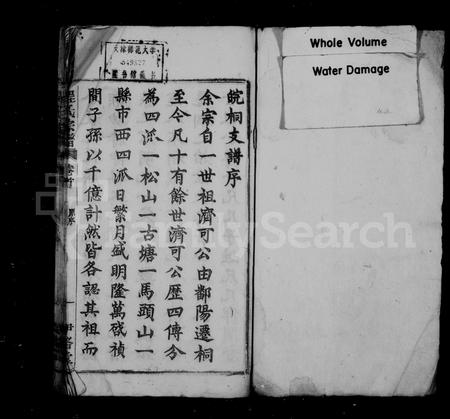 皖桐支譜序
余宗自一世祖濟可公由鄱陽遷桐
至今凡十有餘世濟可公歷四傳分
為四派一松山一古塘一馬頭山一
縣市西四派日繁月盛明隆萬啟禎
間子孫以千億計然皆各認其祖而
程氏宗譜
卷首
安徽師範大學
圖書館藏書
Whole Volume
Water Damage
FamilySearch